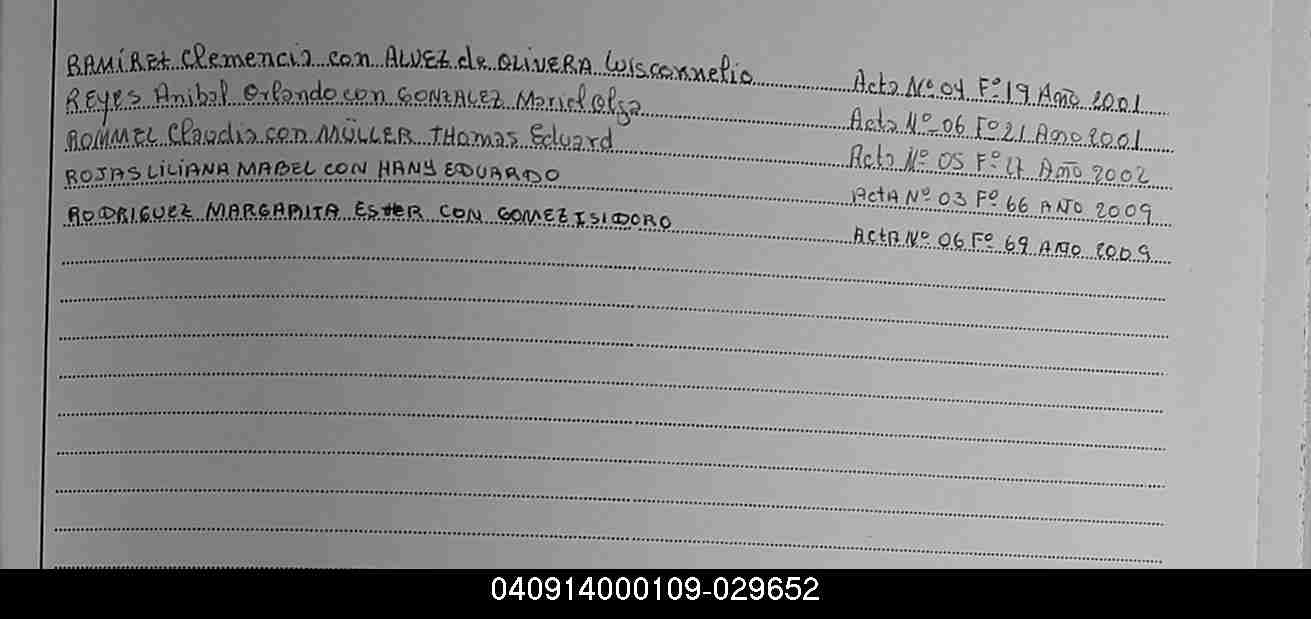 RAMÍREZ Clemencia con ALVEZ de OLIVERA Luis cornelio Acta Nº 04 Fº 19 Año 2001
REYES Anibal Orlando con GONZALEZ Mariel Olga Acta Nº 06 Fº 21 Año 2001
ROMMEL Claudia con MÜLLER THomas Eduard Acta Nº 05 Fº 17 Año 2002
ROJAS LILIANA MABEL CON HANY EDUARDO ActA Nº 03 Fº 66 AÑO 2009
RODRIGUEZ MARGARITA EstER CON GOMEZ ISIDORO ActA Nº 06 Fº 69 AÑO 2009
040914000109-029652